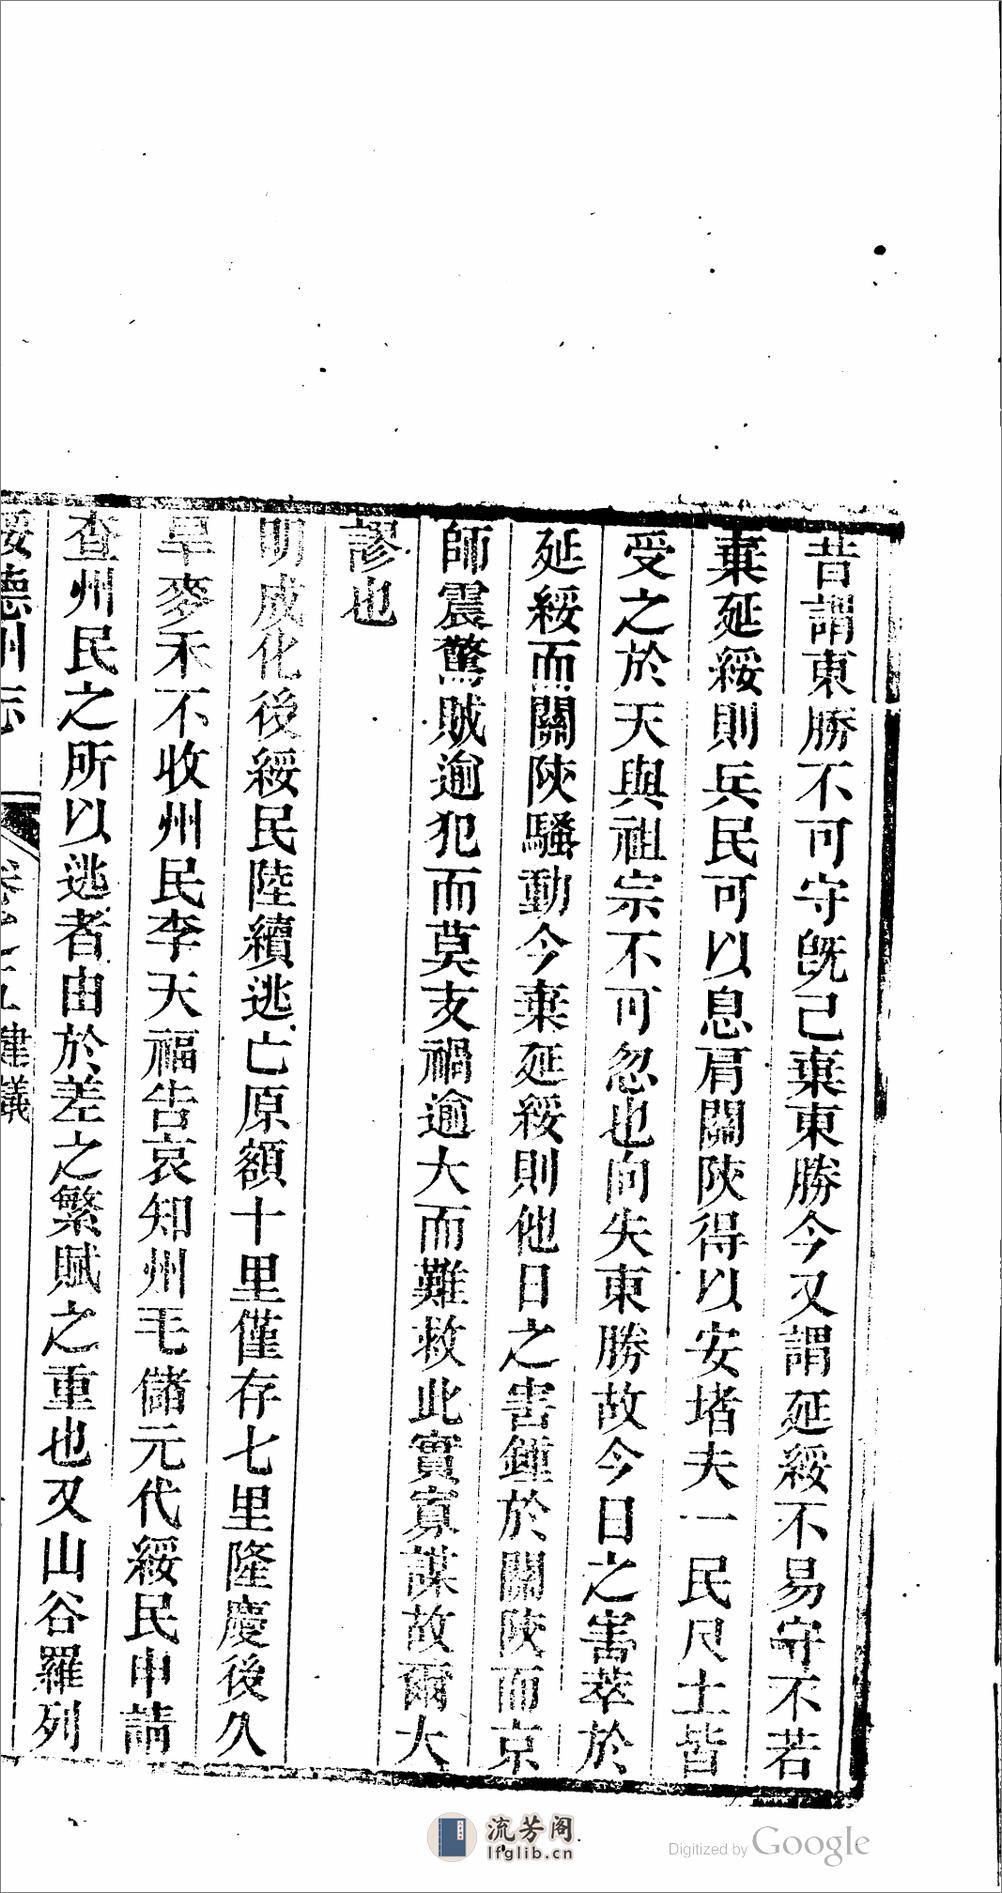 昔謂東勝不可守既已棄東勝今又謂延綏不易守不若
棄延綏則兵民可以息肩關陝得以安堵夫一民尺土皆
受之於天與祖宗不可忽也向失東勝故今日之害萃於
延綏而關陝騷動今棄延綏則他日之害鍾於關陝而京
師震驚賊逾犯而莫支禍逾大而難救此實寡謀故爾大
謬也
明成化後綏民陸續逃亡原額十里僅存七里隆慶後久
旱麥禾不收州民李天福告哀知州毛儲元代綏民申請
查州民之所以逃者由於差之繁賦之重也又山谷羅列
綏德州志 卷之五 建議
流芳阁
lfglib.cn
Digitized by Google